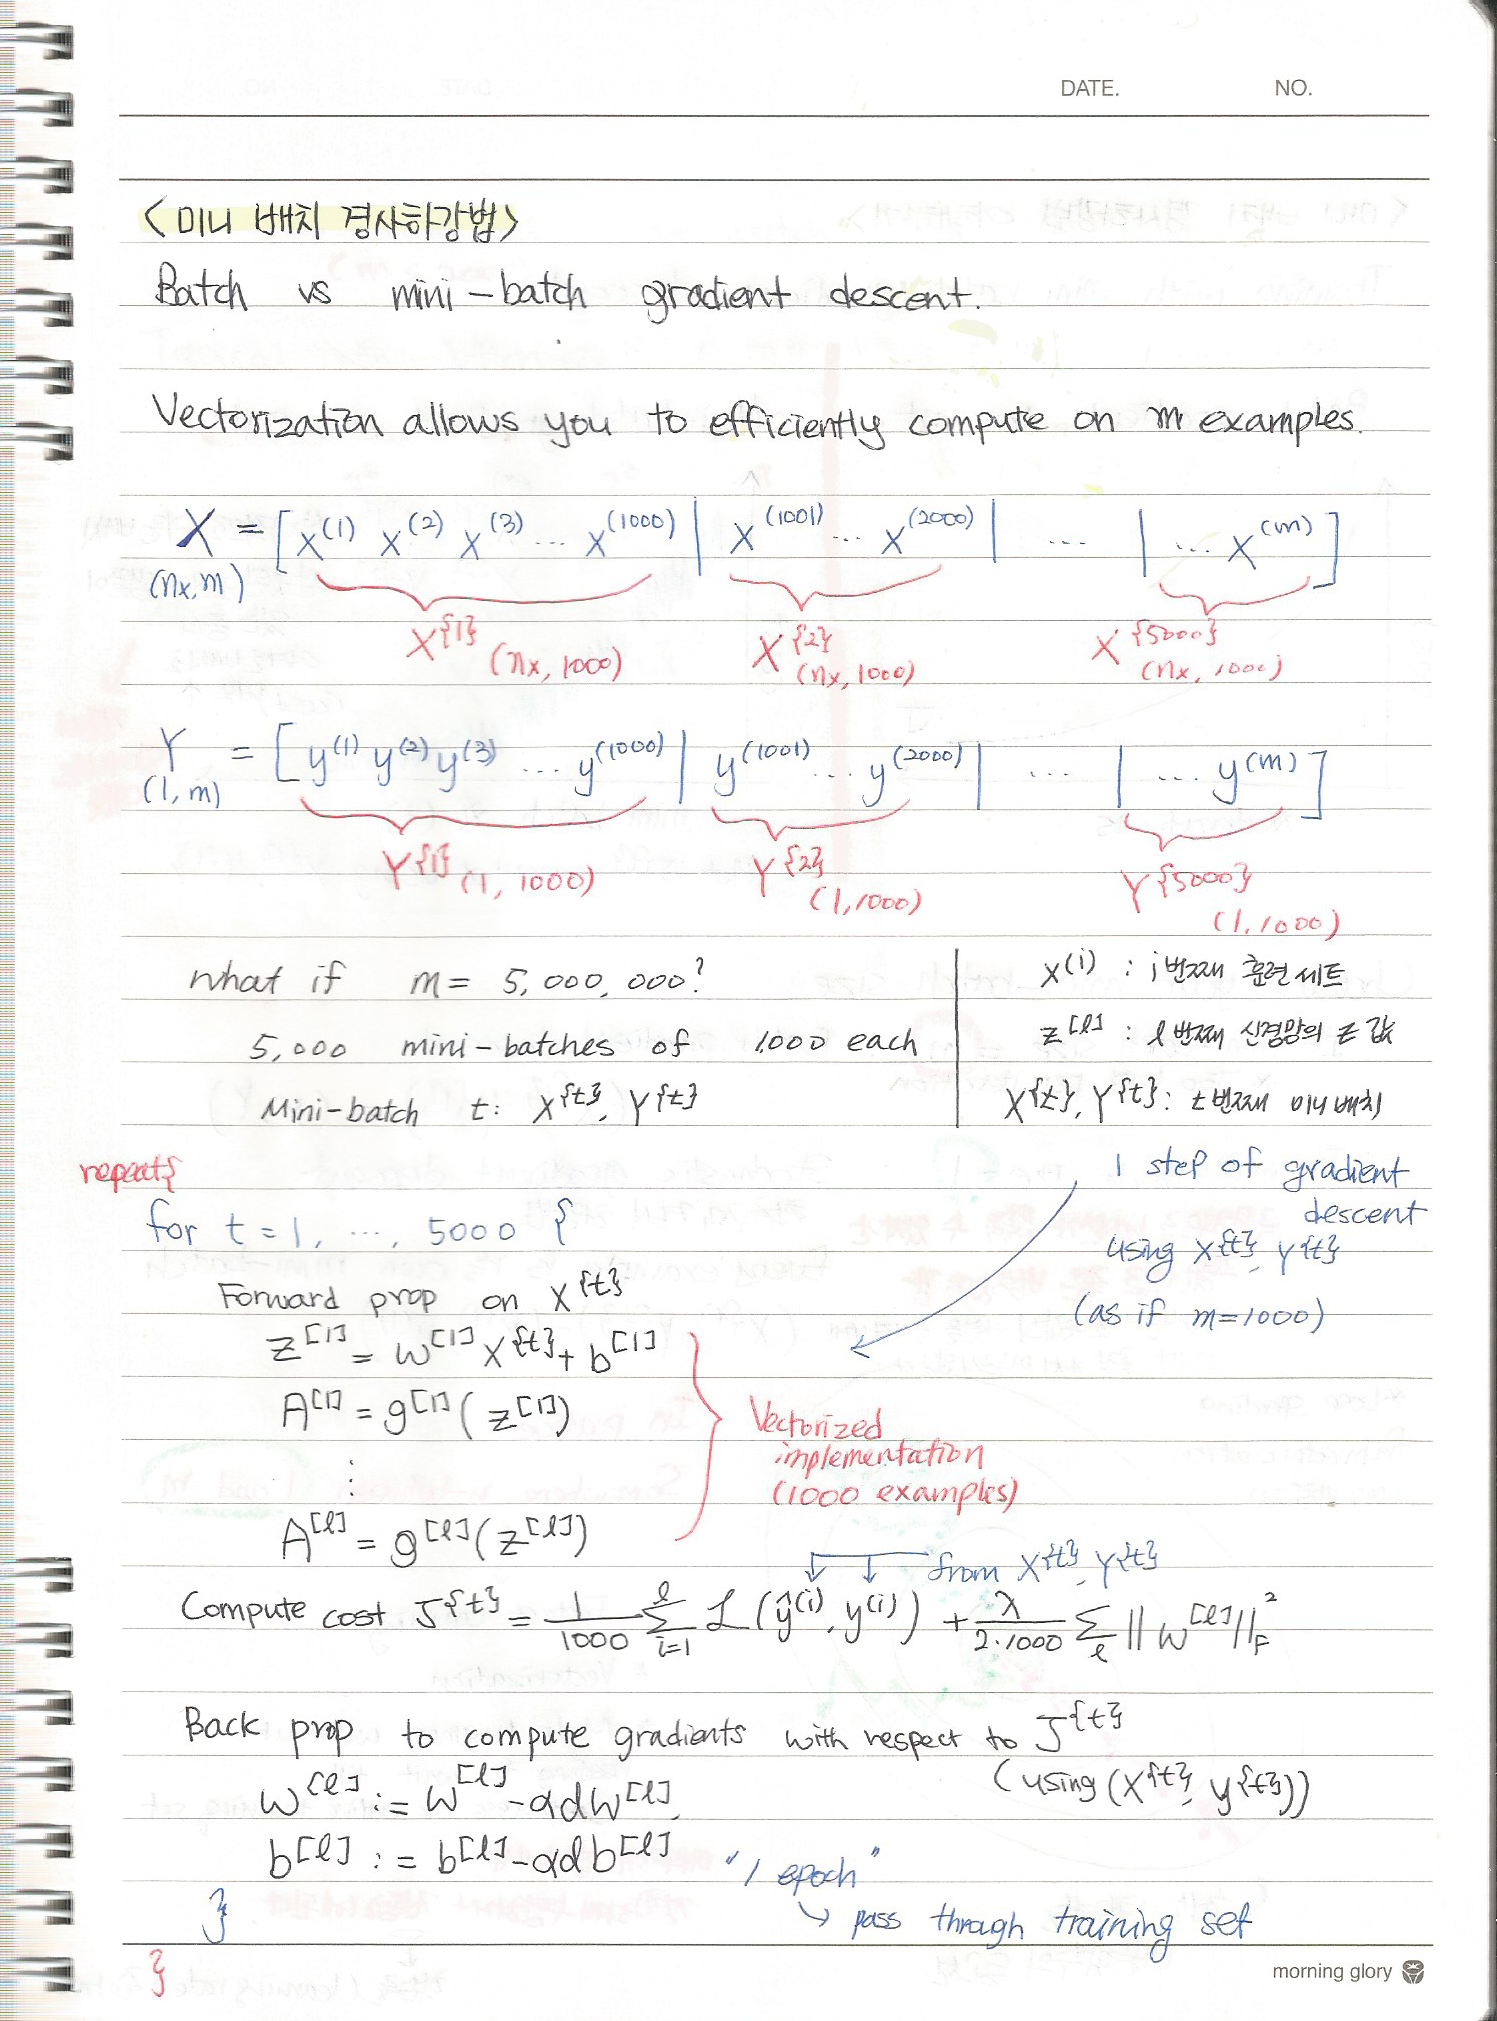 DATE. NO.
<미니 배치 경사하강법>
Batch vs mini-batch gradient descent.
Vectorization allows you to efficiently compute on m examples.
X = [ x^(1) x^(2) x^(3) ... x^(1000) | x^(1001) ... x^(2000) | ... | ... x^(m) ]
(nx, m)
X^{1} (nx, 1000) X^{2} (nx, 1000) X^{5000} (nx, 1000)
Y = [ y^(1) y^(2) y^(3) ... y^(1000) | y^(1001) ... y^(2000) | ... | ... y^(m) ]
(1, m)
Y^{1} (1, 1000) Y^{2} (1, 1000) Y^{5000} (1, 1000)
What if m = 5,000,000?
5,000 mini-batches of 1000 each
Mini-batch t: X^{t}, Y^{t}
x^(i) : i번째 훈련세트
z^[l] : l번째 신경망의 z값
X^{t}, Y^{t} : t번째 미니배치
repeat{
for t = 1, ..., 5000 {
1 step of gradient
descent
using X^{t}, Y^{t}
(as if m=1000)
Forward prop on X^{t}
Z^[1] = W^[1] X^{t} + b^[1]
A^[1] = g^[1](Z^[1])
⋮
A^[l] = g^[l](Z^[l])
Vectorized
implementation
(1000 examples)
from X^{t}, Y^{t}
Compute cost J^{t} = 1/1000 Σ_{i=1}^{l} L(ŷ^(i), y^(i)) + λ/(2·1000) Σ_l ||W^[l]||_F^2
Back prop to compute gradients with respect to J^{t}
(using (X^{t}, Y^{t}))
W^[l] := W^[l] - αdW^[l],
b^[l] := b^[l] - αdb^[l]
"1 epoch"
↳ pass through training set
}
}
morning glory